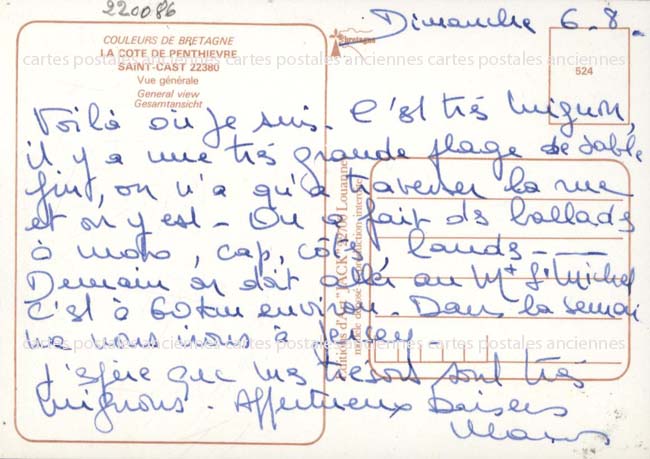 220086
Dimanche 6.8.
COULEURS DE BRETAGNE
LA COTE DE PENTHIEVRE
SAINT-CAST 22380
Vue générale
General view
Gesamtansicht
Bretagne
524
cartes postales anciennes cartes postales anciennes cartes postales anciennes
Voilà où je suis. C'est très mignon,
il y a une très grande plage de sable
fin, on n'a qu'à traverser la rue
et on y est - On a fait des ballades
à moto, cap, côte, lands - - -
Demain on doit aller au Mt St Michel
C'est à 60 km environ. Dans la semai
ne nous irons à Jersey
J'espère que mes trésors sont très
mignons. Affectueux baisers
Editions d'Art "JACK" Louannec
modèle déposé reproduction interdite